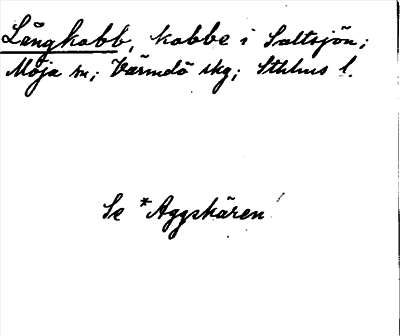 Långkobb, kobbe i Saltsjön;
Möja sn; Värmdö skg; Sthlms l.
Se *Aggskären